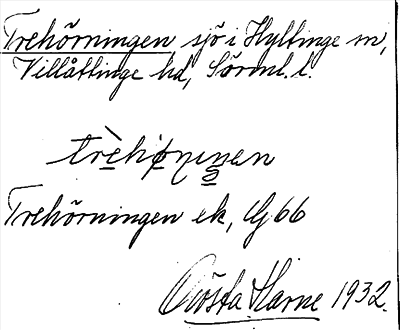 Trehörningen sjö i Hyltinge sn,
Villåttinge hd, Sörml. l.
Trehörningen ek, Gj 66
Gösta Harne 1932.